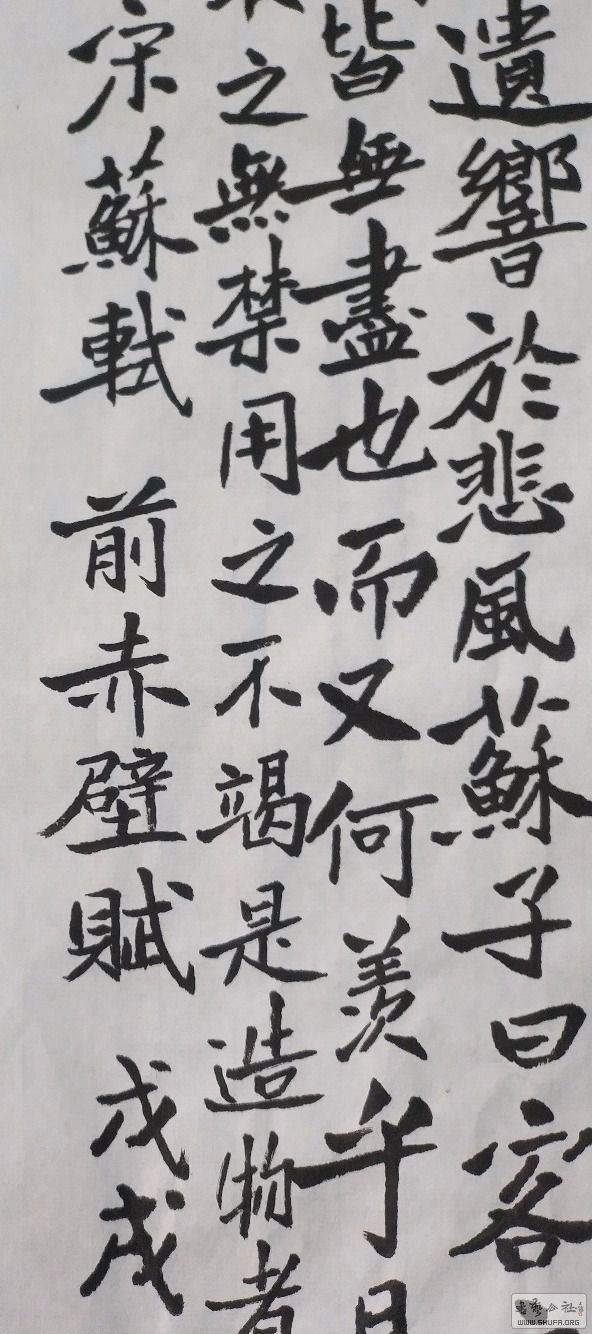 遺響於悲風蘇子曰客
皆無盡也而又何羨乎
之無禁用之不竭是造物者
宋蘇軾 前赤壁賦 戊戌
WWW.SHUFA.ORG